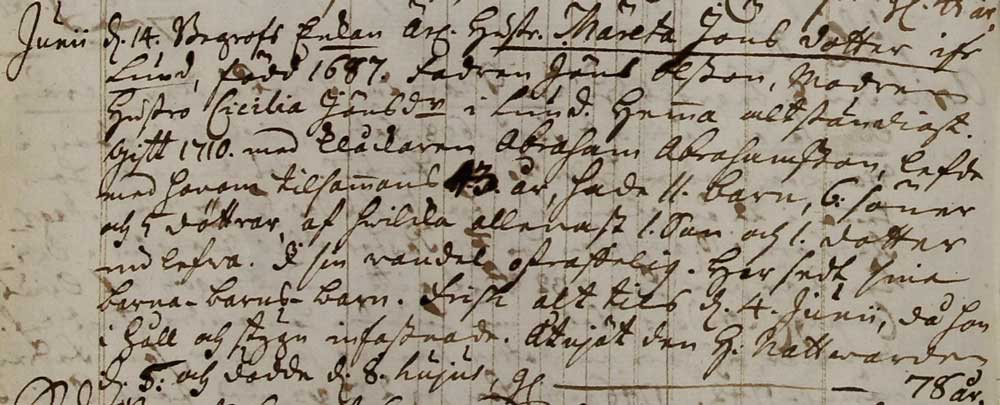 Junii d. 14. Begrofs Enkan Ärl. Hustr. Märeta Jöns dotter ifr
Lund, född 1687. Fadren Jöns Olsson, Modren
Hustro Cicilia Jönsdr i Lund. Hemma altständigt.
Gift 1710. med Klockaren Abraham Abrahamsson, lefde
med honom tilsammans 43. år, hade 11. barn, 6. söner
och 5 döttrar, af hvilka allenast 1. Son och 1. dotter
nu lefva. I sin vandel ostraffelig. Har sedt sine
barna-barns-barn. Frisk alt tils d. 4. Junii, då hon
i håll och stygn infastnade. Åtnjöt den H. Nattwarden
d. 5. och dödde d. 8. hujus, gl — 78 år.